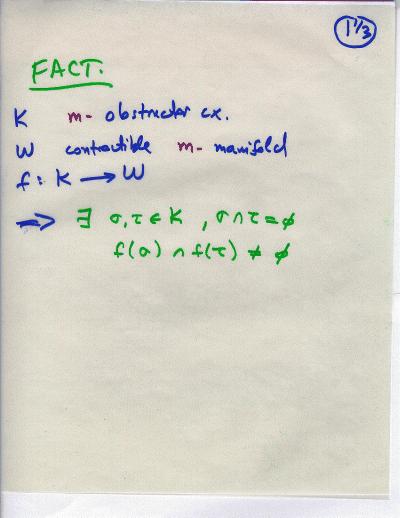 1 1/3
FACT.
K m- obstructor cx.
W contractible m- manifold
f: K → W
⇒ ∃ σ, τ ∈ K, σ ∩ τ = ϕ
f(σ) ∩ f(τ) ≠ ϕ